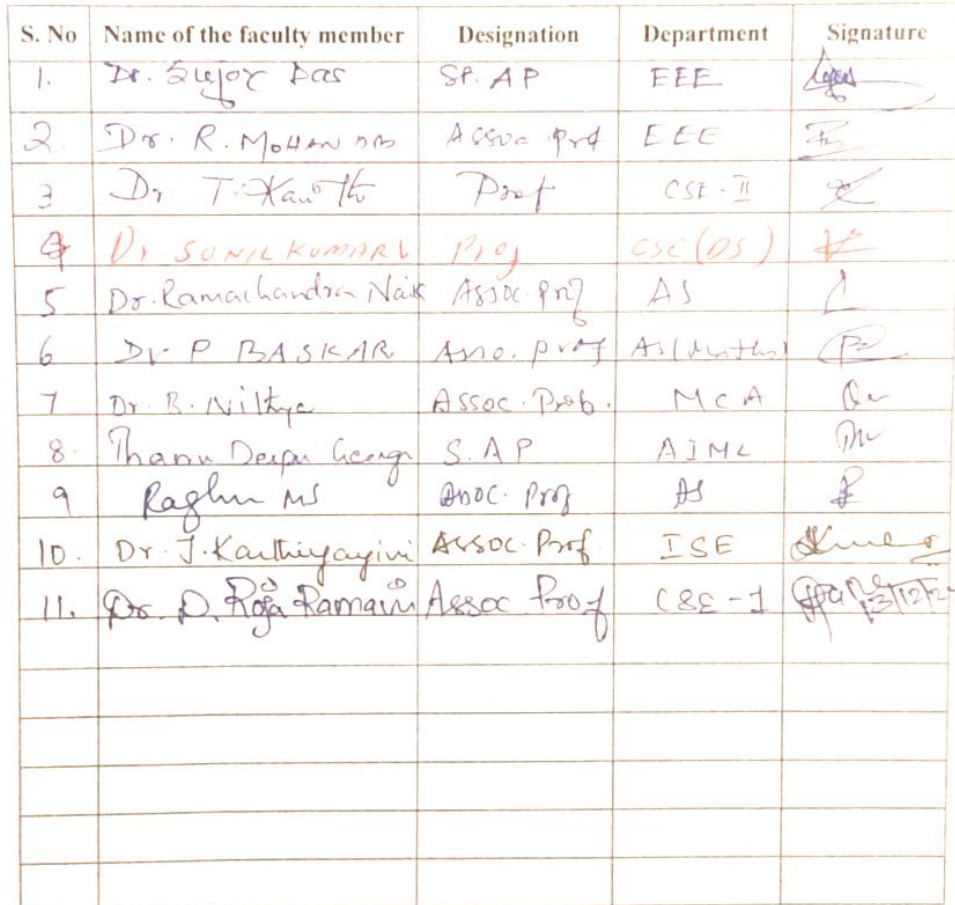 S. No Name of the faculty member Designation Department Signature
1. Dr. Sujoy Das SR. AP EEE
2. Dr. R. MOHAN DAS Assoc. Prof EEE
3 Dr. T. Prof CSE-II
4 Dr SUNIL KUMAR V Prof CSE(DS)
5 Dr. Ramachandra Naik Assoc. Prof AS
6 Dr P BASKAR Asso. Prof AS(Maths)
7 Dr. B. Nithya Assoc. Prof. MCA
8. Deepa S. AP AIML
9 Raghu MS Assoc. Prof AS
10. Dr. J. Karthiyayini Assoc. Prof. ISE
11. Dr. D. Roja Ramani Assoc Prof CSE-1